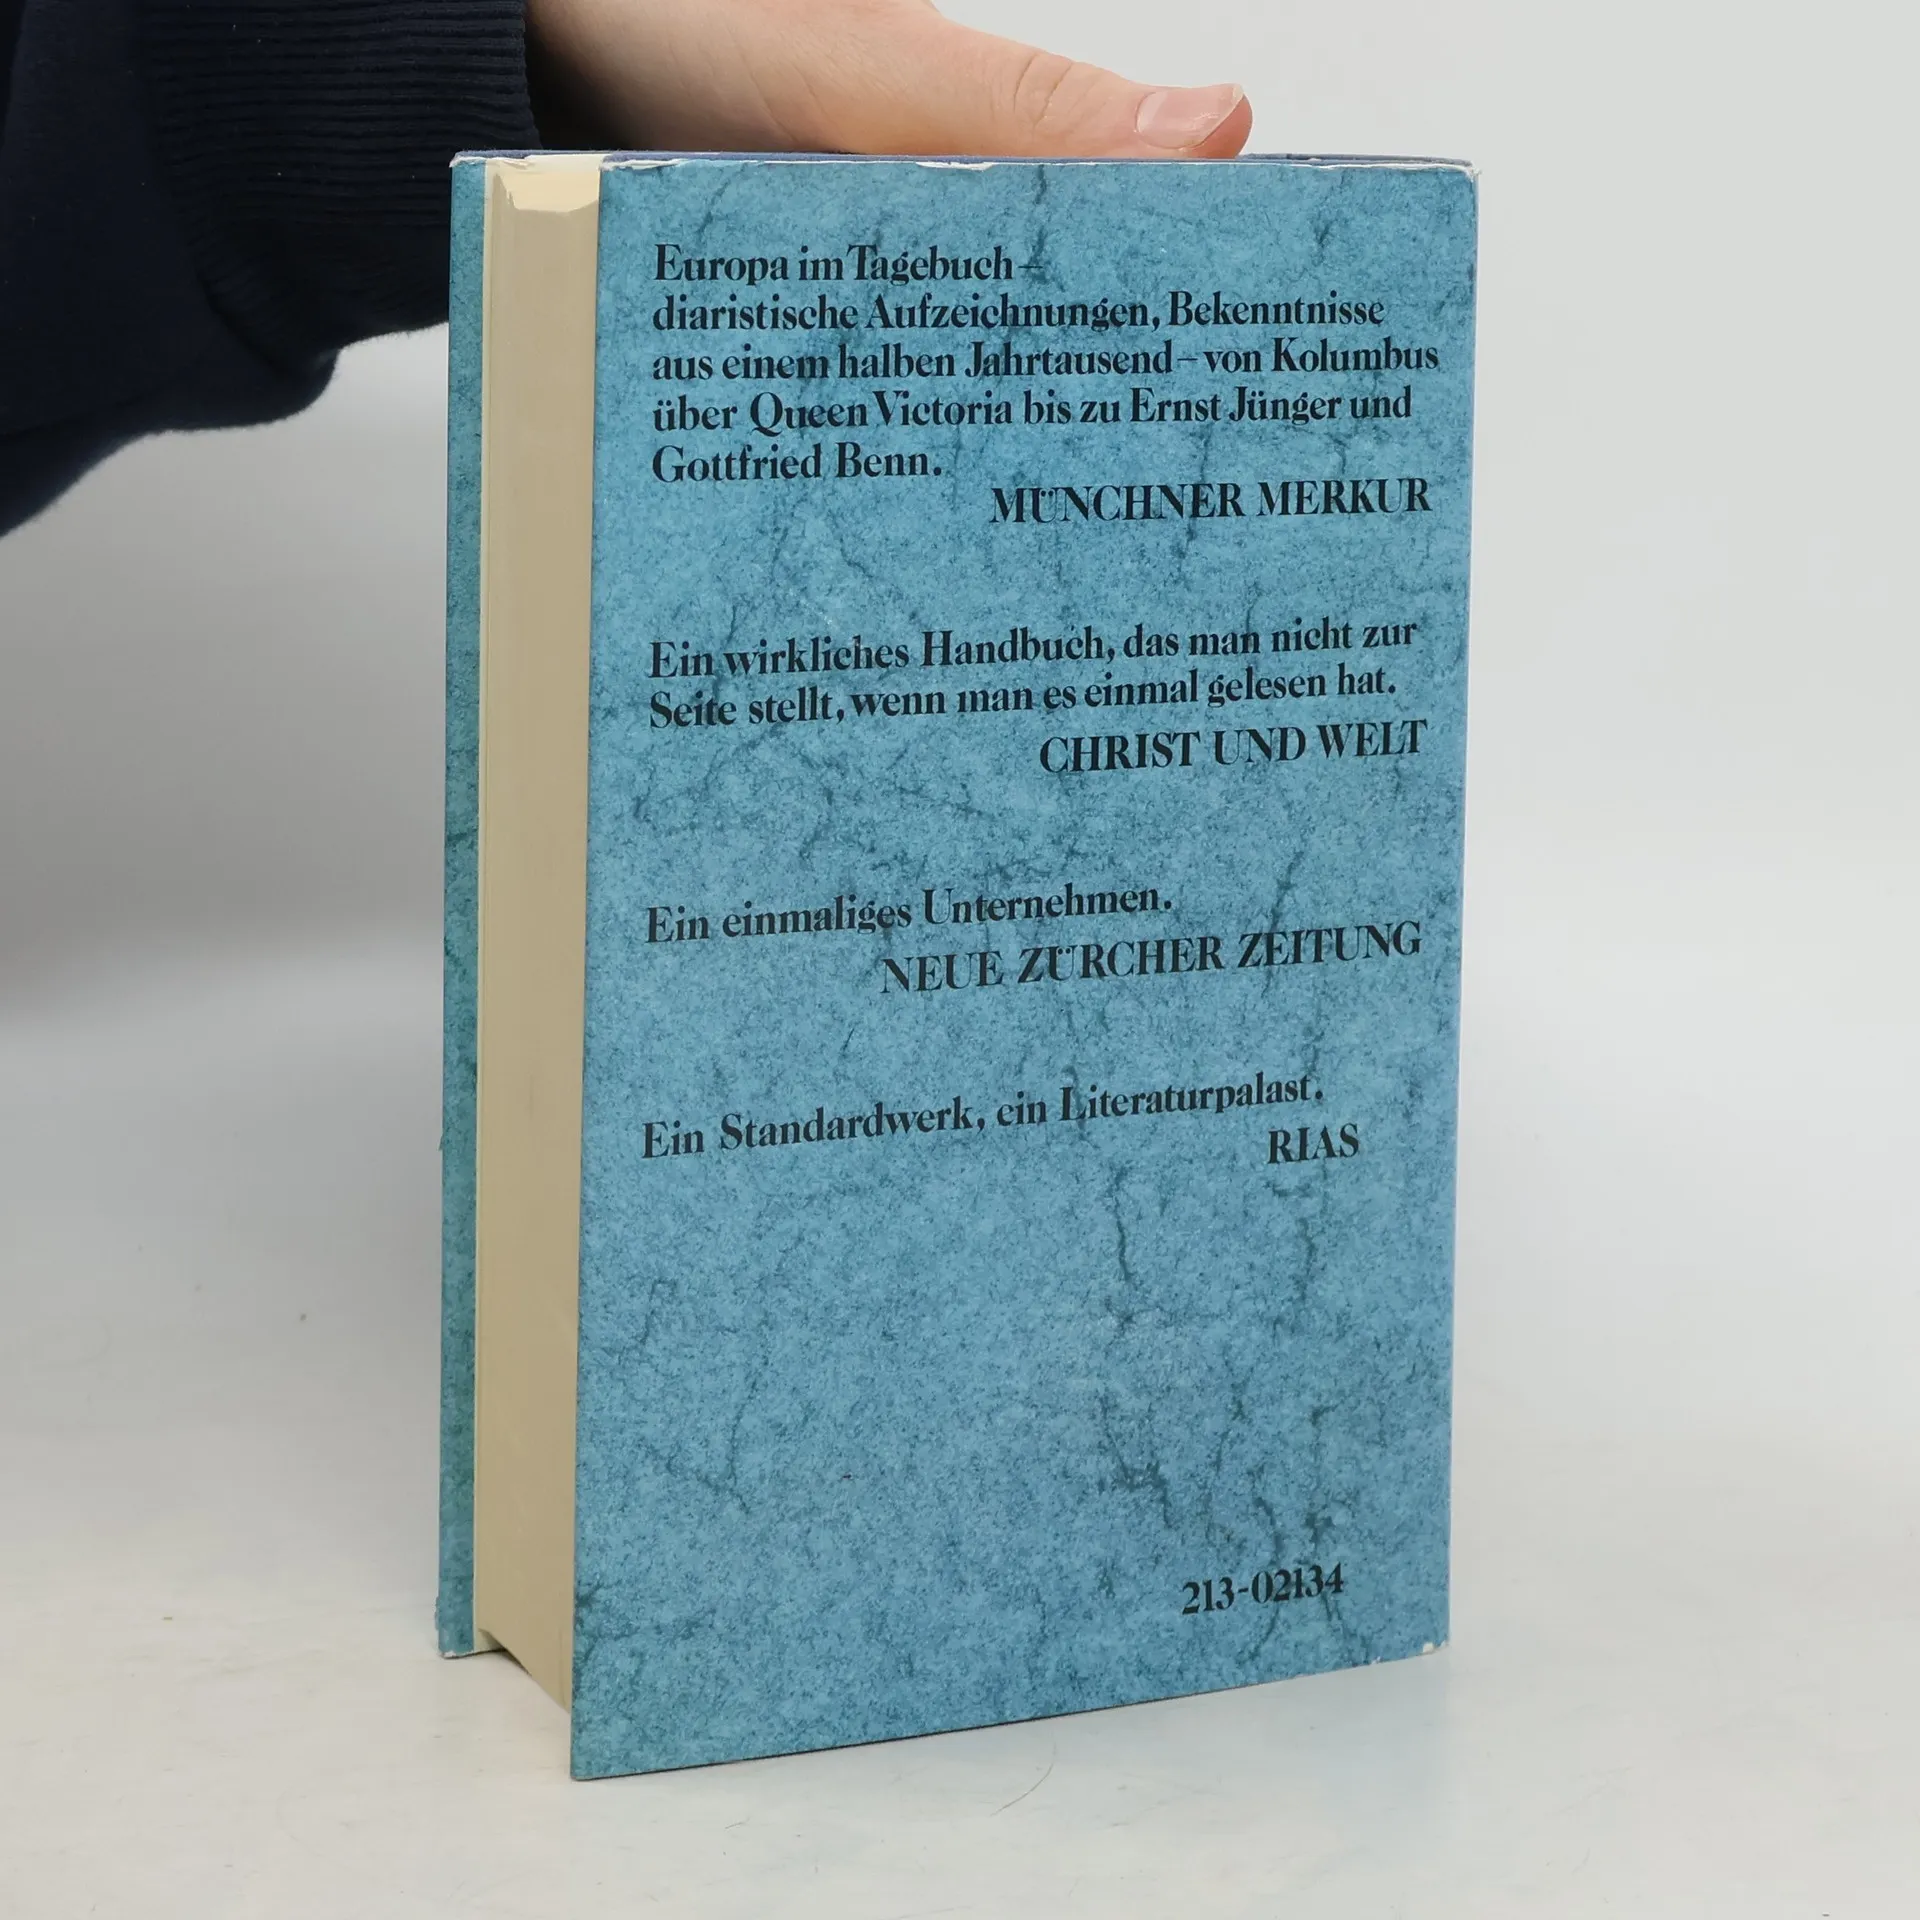 Europa im Tagebuch –
diaristische Aufzeichnungen, Bekenntnisse
aus einem halben Jahrtausend – von Kolumbus
über Queen Victoria bis zu Ernst Jünger und
Gottfried Benn.
MÜNCHNER MERKUR
Ein wirkliches Handbuch, das man nicht zur
Seite stellt, wenn man es einmal gelesen hat.
CHRIST UND WELT
Ein einmaliges Unternehmen.
NEUE ZÜRCHER ZEITUNG
Ein Standardwerk, ein Literaturpalast.
RIAS
213-02134